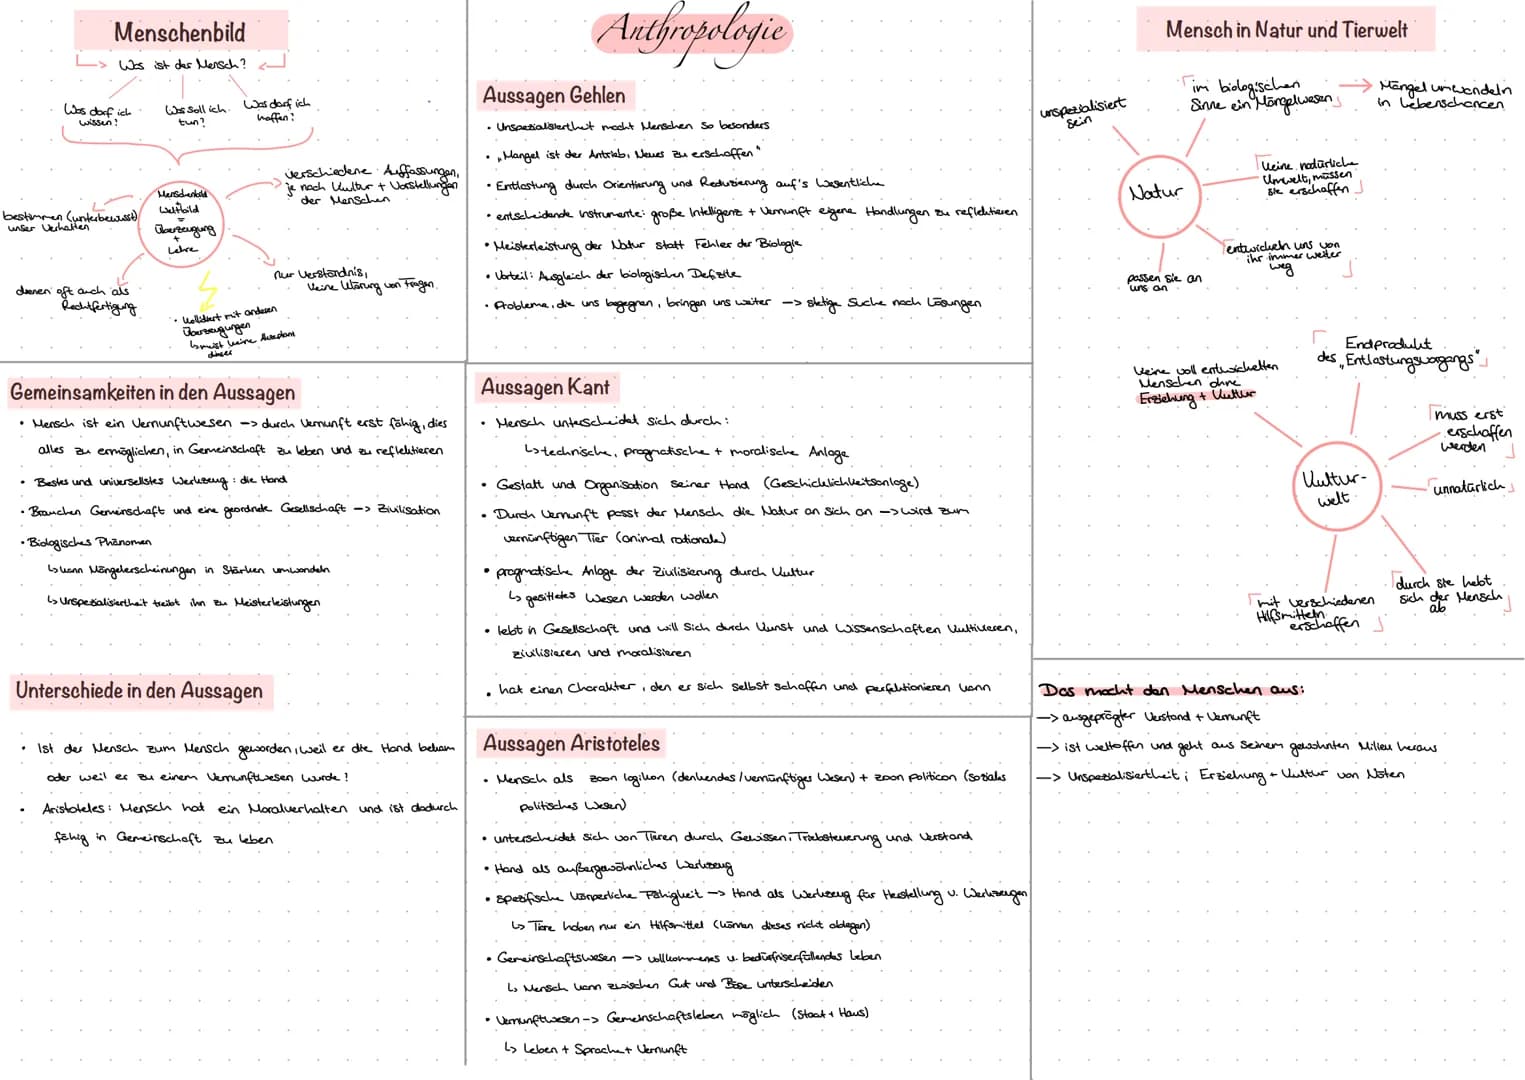 Menschenbild
Was ist der Mensch?
Was darf ich
wissen?
Was soll ich
tun?
Was darf ich
hoffen?
Menschenbild
Weltbild
=
Überzeugung
+
Lehre
verschiedene Auffassungen,
je nach Kultur + Vorstellungen
der Menschen
bestimmen (unterbewusst)
unser Verhalten
dienen oft auch als
Rechtfertigung
nur Verständnis,
keine Klärung von Fragen
• kollidiert mit anderen
Überzeugungen
↳ meist keine Akzeptanz
dieser
Gemeinsamkeiten in den Aussagen
• Mensch ist ein Vernunftwesen -> durch Vernunft erst fähig, dies
alles zu ermöglichen, in Gemeinschaft zu leben und zu reflektieren
• Bestes und universellstes Werkzeug: die Hand
• Brauchen Gemeinschaft und eine geordnete Gesellschaft -> Zivilisation
• Biologisches Phänomen
↳ kann Mängelerscheinungen in Stärken umwandeln
↳ Unspezialisiertheit treibt ihn zu Meisterleistungen
Unterschiede in den Aussagen
• Ist der Mensch zum Mensch geworden, weil er die Hand bekam
oder weil er zu einem Vernunftwesen wurde?
• Aristoteles: Mensch hat ein Moralverhalten und ist dadurch
fähig in Gemeinschaft zu leben
Anthropologie
Aussagen Gehlen
• Unspezialisiertheit macht Menschen so besonders
• „Mangel ist der Antrieb, Neues zu erschaffen"
• Entlastung durch Orientierung und Reduzierung auf's Wesentliche
• entscheidende Instrumente: große Intelligenz + Vernunft eigene Handlungen zu reflektieren
• Meisterleistung der Natur statt Fehler der Biologie
• Vorteil: Ausgleich der biologischen Defizite
• Probleme, die uns begegnen, bringen uns weiter -> stetige Suche nach Lösungen
Aussagen Kant
• Mensch unterscheidet sich durch:
↳ technische, pragmatische + moralische Anlage
• Gestalt und Organisation seiner Hand (Geschicklichkeitsanlage)
• Durch Vernunft passt der Mensch die Natur an sich an -> wird zum
vernünftigen Tier (animal rationale)
• pragmatische Anlage der Zivilisierung durch Kultur
↳ gesittetes Wesen werden wollen
• lebt in Gesellschaft und will sich durch Kunst und Wissenschaften kultivieren,
zivilisieren und moralisieren
• hat einen Charakter, den er sich selbst schaffen und perfektionieren kann
Aussagen Aristoteles
• Mensch als zoon logikon (denkendes/vernünftiges Wesen) + zoon politicon (soziales
politisches Wesen)
• unterscheidet sich von Tieren durch Gewissen, Triebsteuerung und Verstand
• Hand als außergewöhnliches Werkzeug
• spezifische körperliche Fähigkeit -> Hand als Werkzeug für Herstellung v. Werkzeugen
↳ Tiere haben nur ein Hilfsmittel (können dieses nicht ablegen)
• Gemeinschaftswesen -> vollkommenes u. bedürfniserfüllendes Leben
↳ Mensch kann zwischen Gut und Böse unterscheiden
• Vernunftwesen -> Gemeinschaftsleben möglich (Staat + Haus)
↳ Leben + Sprache + Vernunft
Mensch in Natur und Tierwelt
unspezialisiert
sein
im biologischen
Sinne ein Mängelwesen
-> Mängel umwandeln
in Lebenschancen
Natur
keine natürliche
Umwelt, müssen
sie erschaffen
entwickeln uns von
ihr immer weiter
weg
passen sie an
uns an
Endprodukt
des „Entlastungsvorgangs"
keine voll entwickelten
Menschen ohne
Erziehung + Kultur
muss erst
erschaffen
werden
Kultur-
welt
unnatürlich
durch sie hebt
sich der Mensch
ab
mit verschiedenen
Hilfsmitteln
erschaffen
Das macht den Menschen aus:
-> ausgeprägter Verstand + Vernunft
-> ist weltoffen und geht aus seinem gewohnten Milieu heraus
-> Unspezialisiertheit; Erziehung + Kultur von Nöten